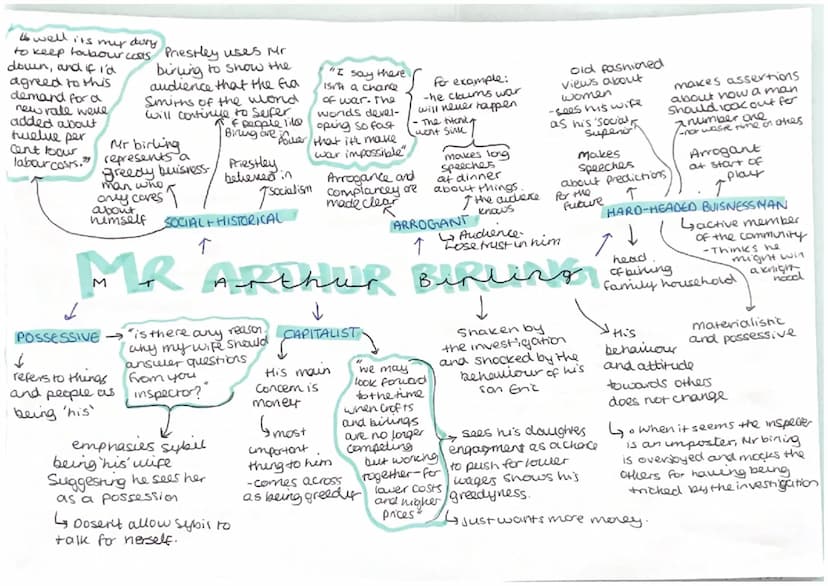 "Well its my duty
to keep labour costs
down, and if I'd
agreed to this
demand for a
new rate we'd
added about
twelve per
cent to our
labour costs."
Priestley uses Mr
birling to show the
audience that the Eva
Smiths of the world
will continue to suffer
if people like
Birling are in
Power
Mr birling
represents a
greedy buisness
man who
only cares
about
himself
Priestley
believed in
Socialism
SOCIAL + HISTORICAL
"I say there
isn't a chance
of war. The
worlds devel-
oping so fast
that it'll make
war impossible"
For example:
-he claims war
will never happen
- The titanic
wont sink
Arrogance and
complancey are
made clear
makes long
speeches
at dinner
about things.
the audience
knows
ARROGANT
Audience
lose trust in him
old fashioned
views about
women
-sees his wife
as his 'social
superior'
makes assertions
about how a man
should look out for
number one
-not waste time on others
Makes
speeches
about predictions
for the
future
Arrogant
at start of
play
HARD-HEADED BUISNESSMAN
active member
of the community
- Thinks he
might win
a knight-
hood
head
of birling
family household
materialistic
and possessive
Mr ARTHUR BIRLING
Mr Arthur Birling
POSSESSIVE
refers to things
and people as
being 'his'
"is there any reason
why my wife should
answer questions
from you
inspector?"
emphasies Sybil
being 'his' wife
Suggesting he sees her
as a possession
Dosent allow Sybil to
talk for herself.
CAPITALIST
His main
concern is
money
most
important
thing to him
- comes across
as being greedy
"we may
look forward
to the time
when Crofts
and birlings
are no longer
competing
but working
together-for
lower costs
and higher
prices"
sees his daughters
engagement as a chance
to push for lower
wages shows his
greedyness.
Just wants more money.
Shaken by
the investigation
and shocked by the
behaviour of his
son Eric
His
behaviour
and attitude
towards others
does not change
when it seems the inspector
is an imposter, Mr birling
is overjoyed and mocks the
others for having being
tricked by the investigation